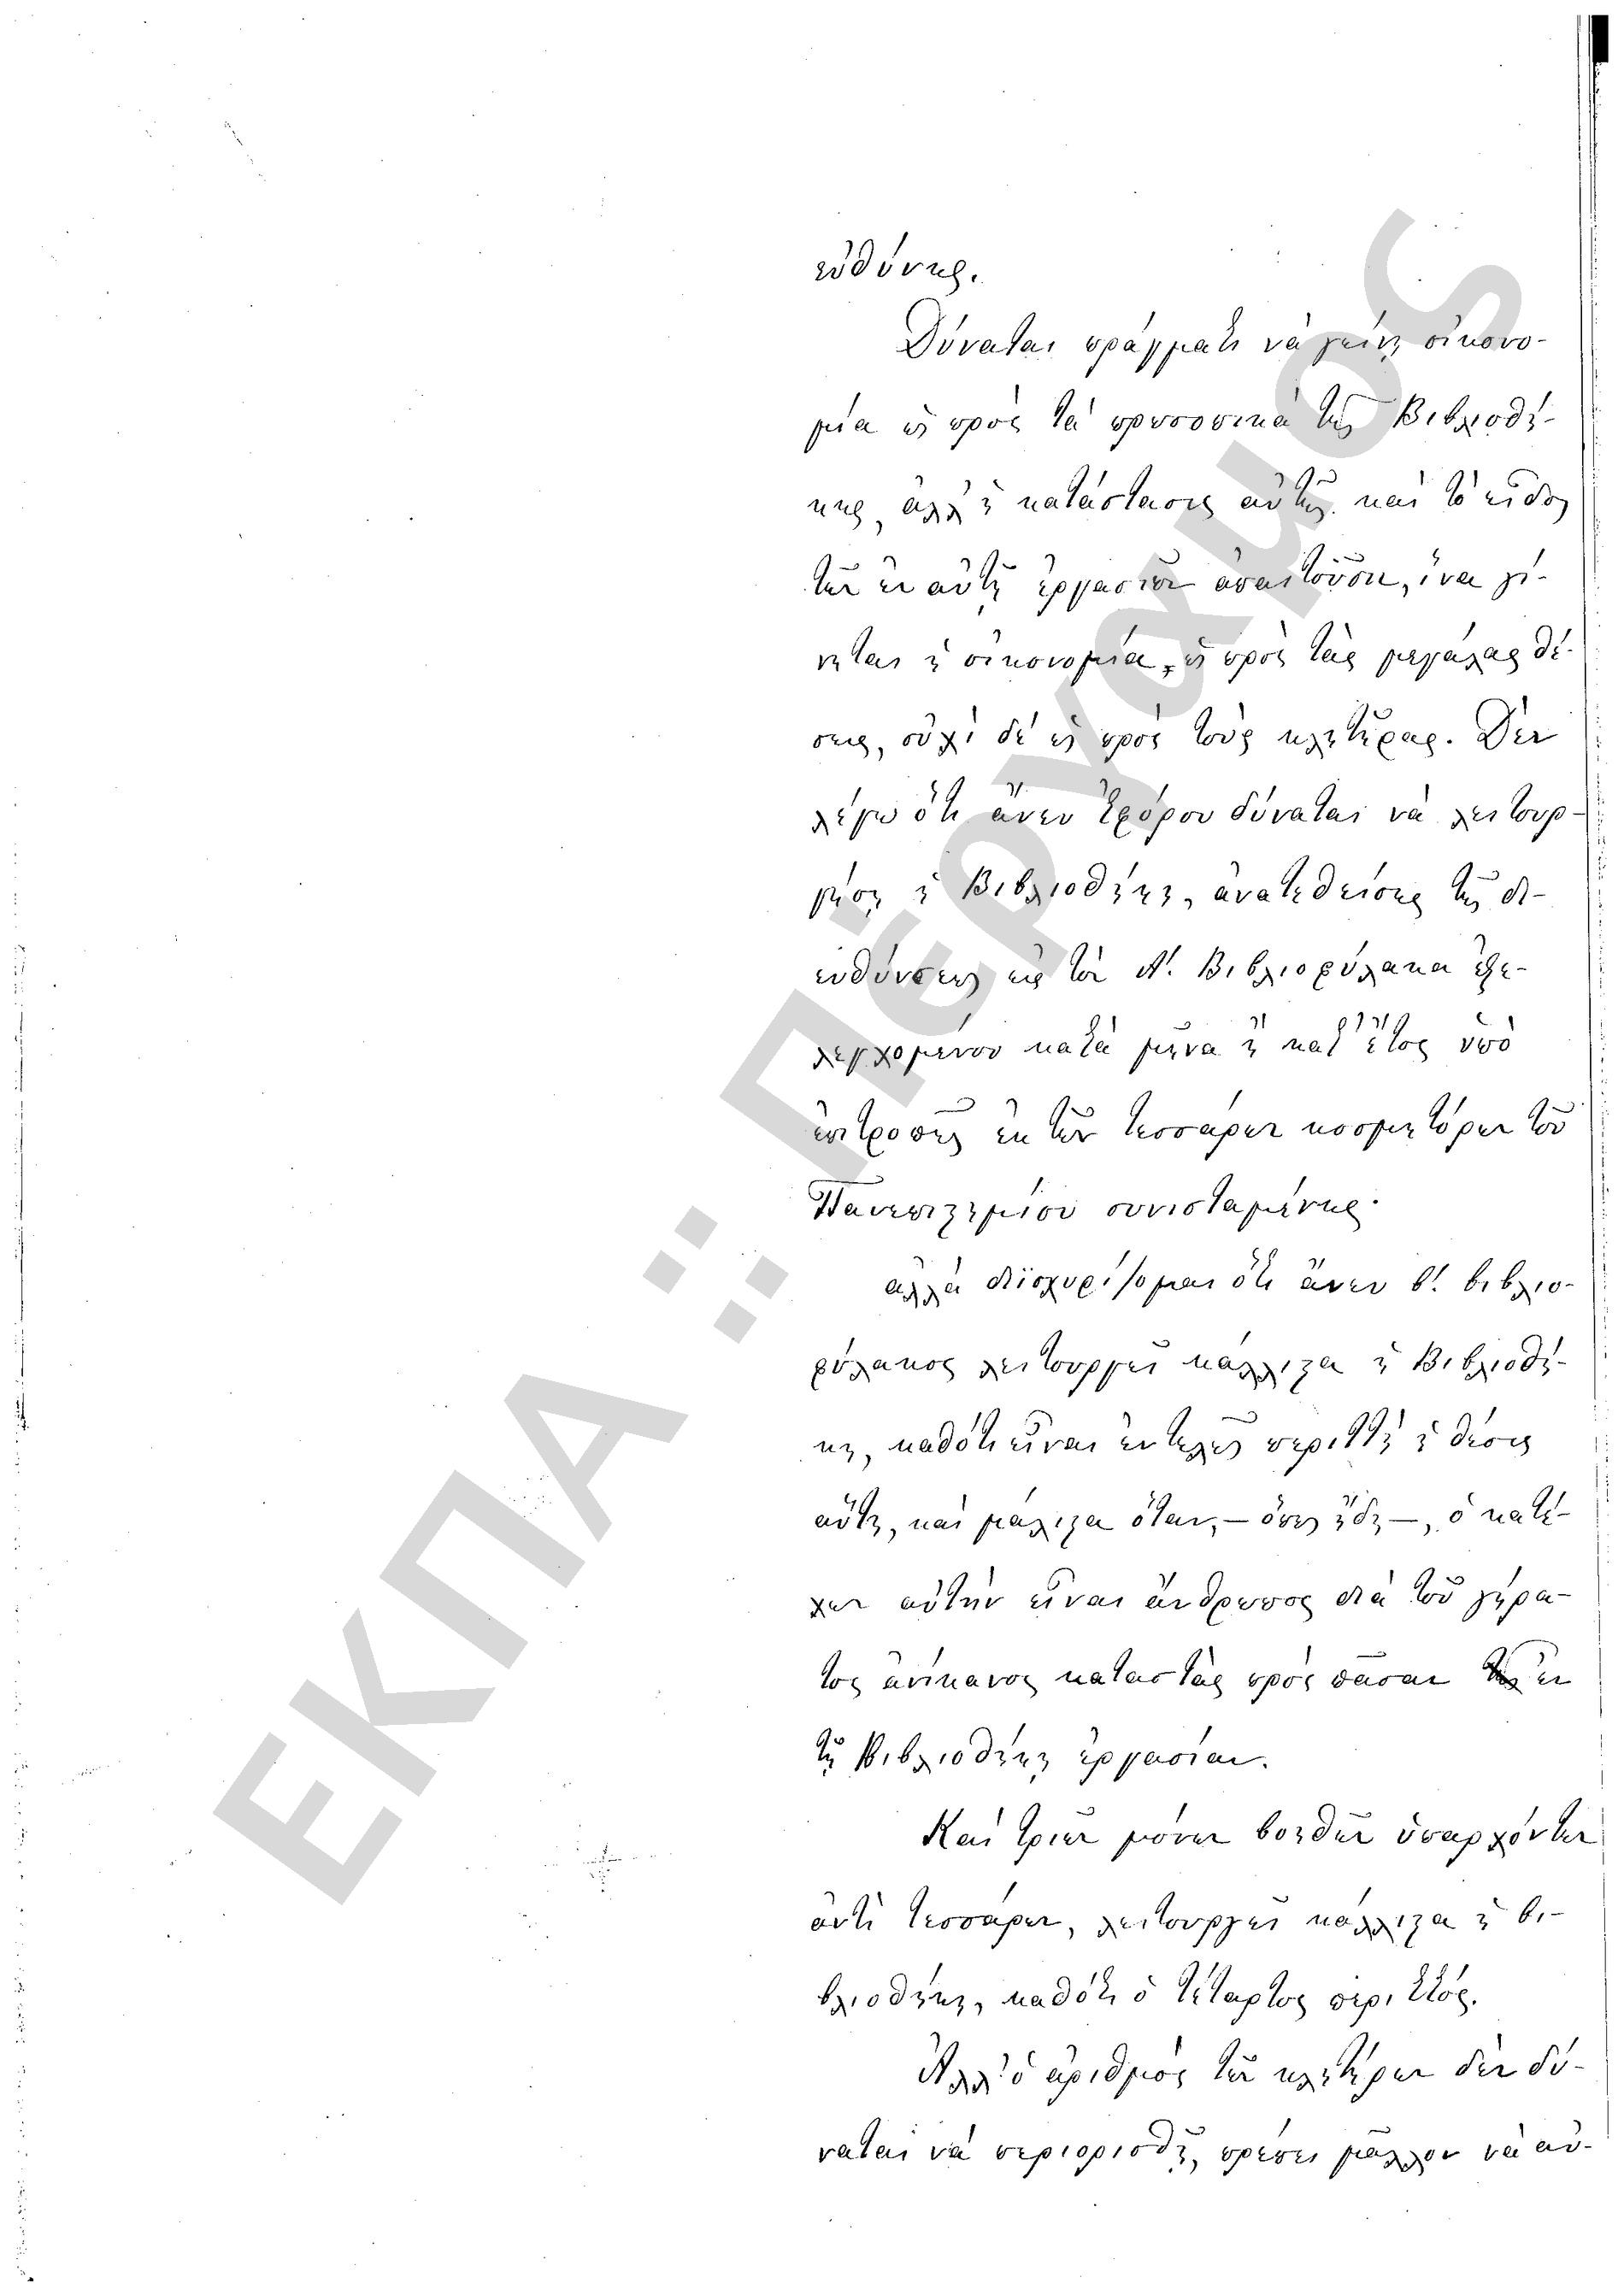 εὐθύνης.
Δύναται πράγματι νὰ γείνῃ οἰκονο-
μία ὡς πρὸς τὰ προσωπικὰ τῆς Βιβλιοθή-
κης, ἀλλ' ἡ κατάστασις αὐτῆς καὶ τὸ εἶδος
τῶν ἐν αὐτῇ ἐργασιῶν ἀπαιτοῦσιν, ἵνα γί-
νηται ἡ οἰκονομία, ὡς πρὸς τὰς μεγάλας θέ-
σεις, οὐχὶ δὲ ὡς πρὸς τοὺς κλητῆρας. Δὲν
λέγω ὅτι ἄνευ ἐφόρου δύναται νὰ λειτουρ-
γήσῃ ἡ Βιβλιοθήκη, ἀνατεθείσης τῆς δι-
ευθύνσεως εἰς τὸν Α'. Βιβλιοφύλακα ἐξε-
λεγχομένου κατὰ μῆνα ἢ κατ' ἔτος ὑπὸ
ἐπιτροπῆς ἐκ τῶν τεσσάρων κοσμητόρων τοῦ
Πανεπιστημίου συνισταμένης·
ἀλλὰ διϊσχυρίζομαι ὅτι ἄνευ β'. βιβλιο-
φύλακος λειτουργεῖ κάλλιστα ἡ Βιβλιοθή-
κη, καθότι εἶναι ἐντελῶς περιττὴ ἡ θέσις
αὕτη, καὶ μάλιστα ὅταν, – ὅπως ἤδη –, ὁ κατέ-
χων αὐτὴν εἶναι ἄνθρωπος διὰ τοῦ γήρα-
τος ἀνίκανος καταστὰς πρὸς πᾶσαν ἐν
τῇ Βιβλιοθήκῃ ἐργασίαν.
Καὶ τριῶν μόνων βοηθῶν ὑπαρχόντων
ἀντὶ τεσσάρων, λειτουργεῖ κάλλιστα ἡ βι-
βλιοθήκη, καθότι ὁ τέταρτος περιττός.
Ἀλλ' ὁ ἀριθμὸς τῶν κλητήρων δὲν δύ-
ναται νὰ περιορισθῇ, πρέπει μᾶλλον νὰ αὐ-
ΕΚΠΑ :: Πέργαμος